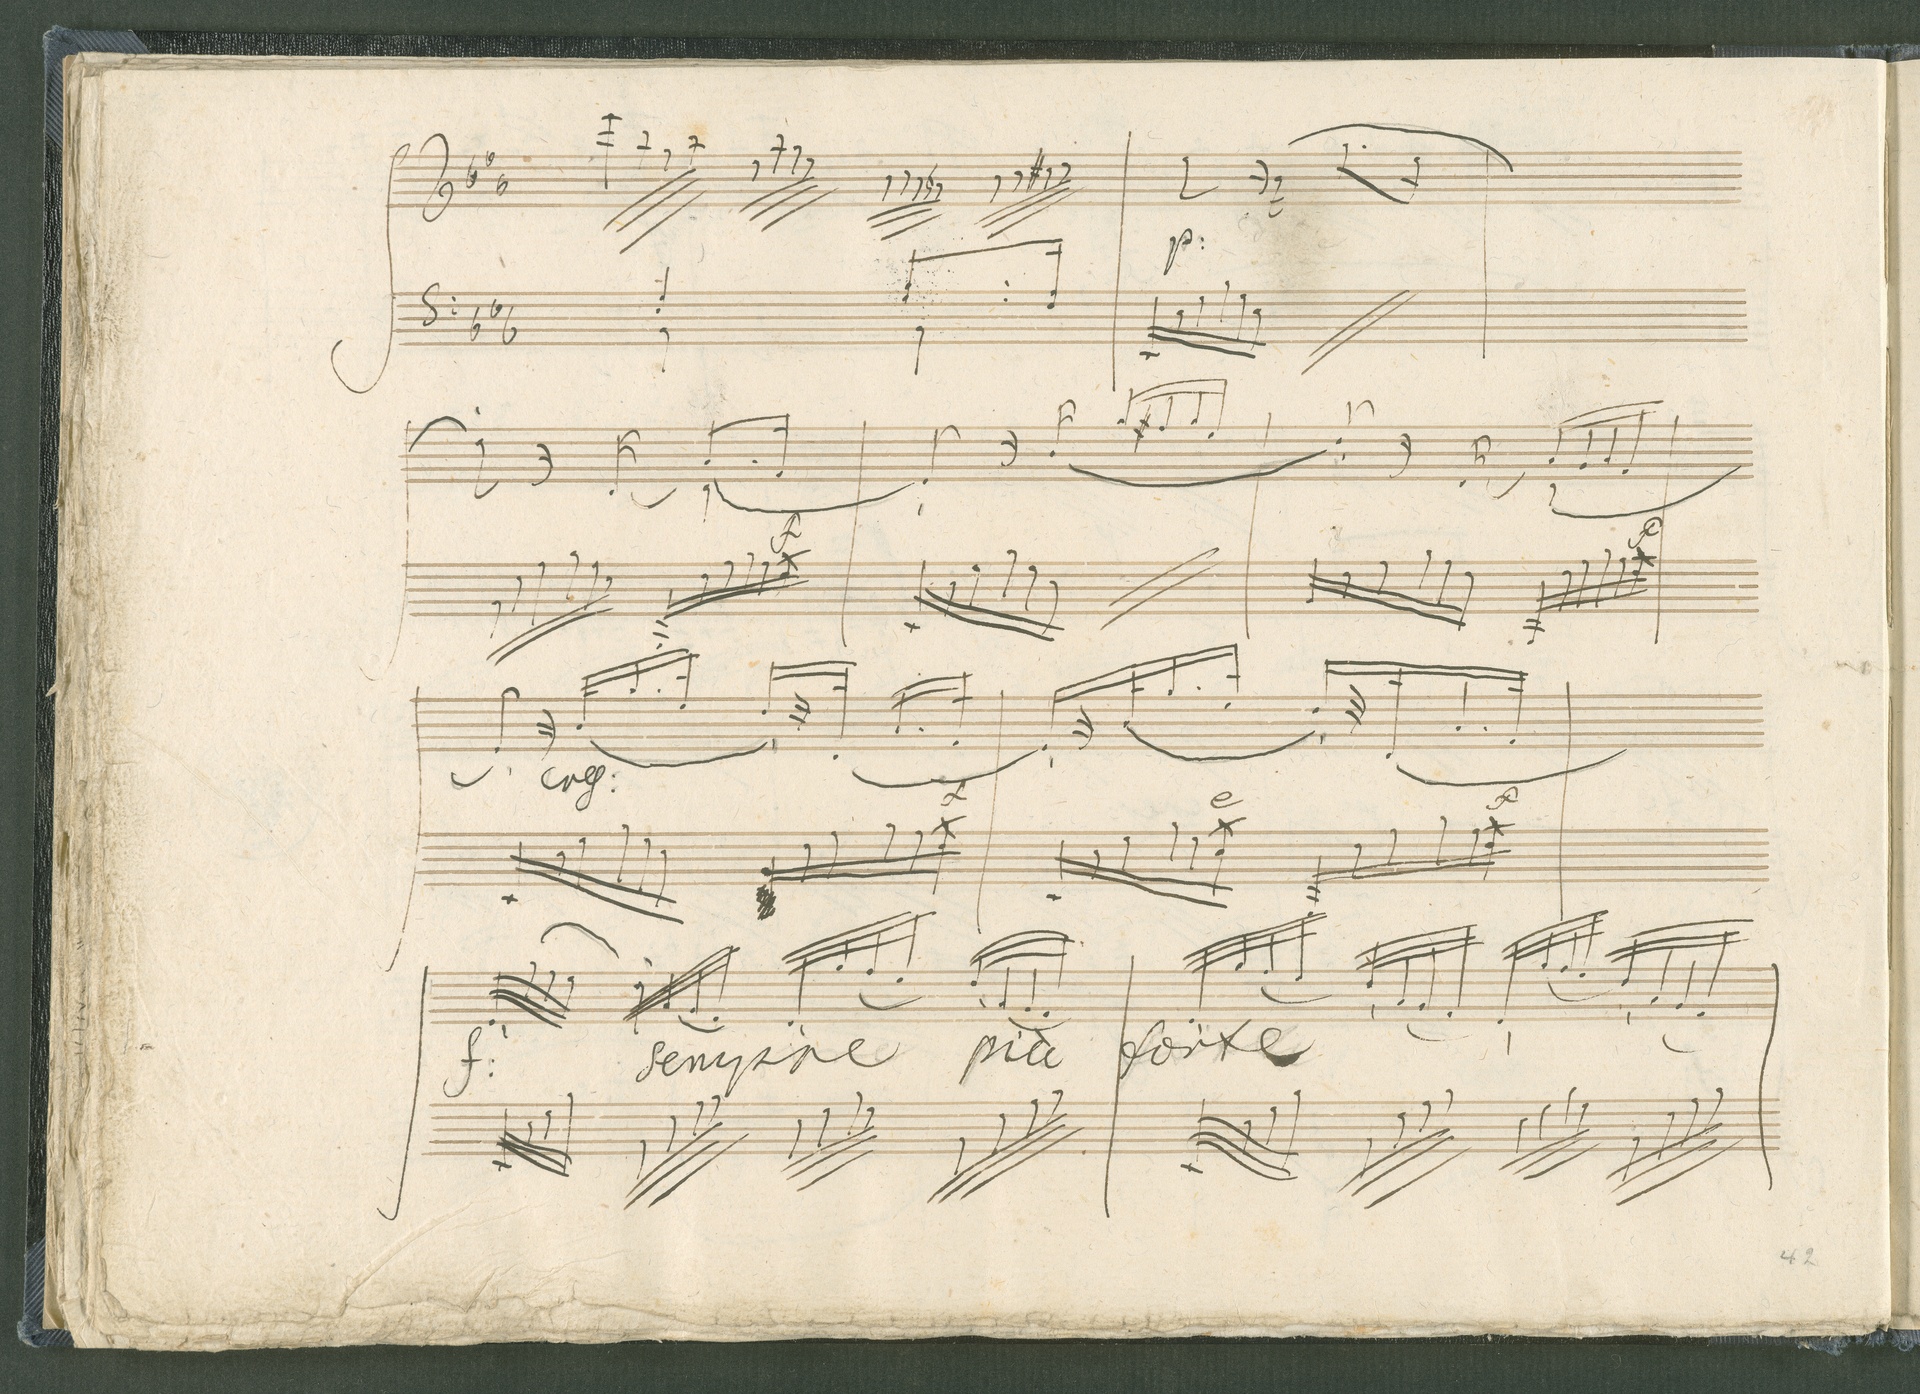 p:
cres:
f: sempre più forte
42